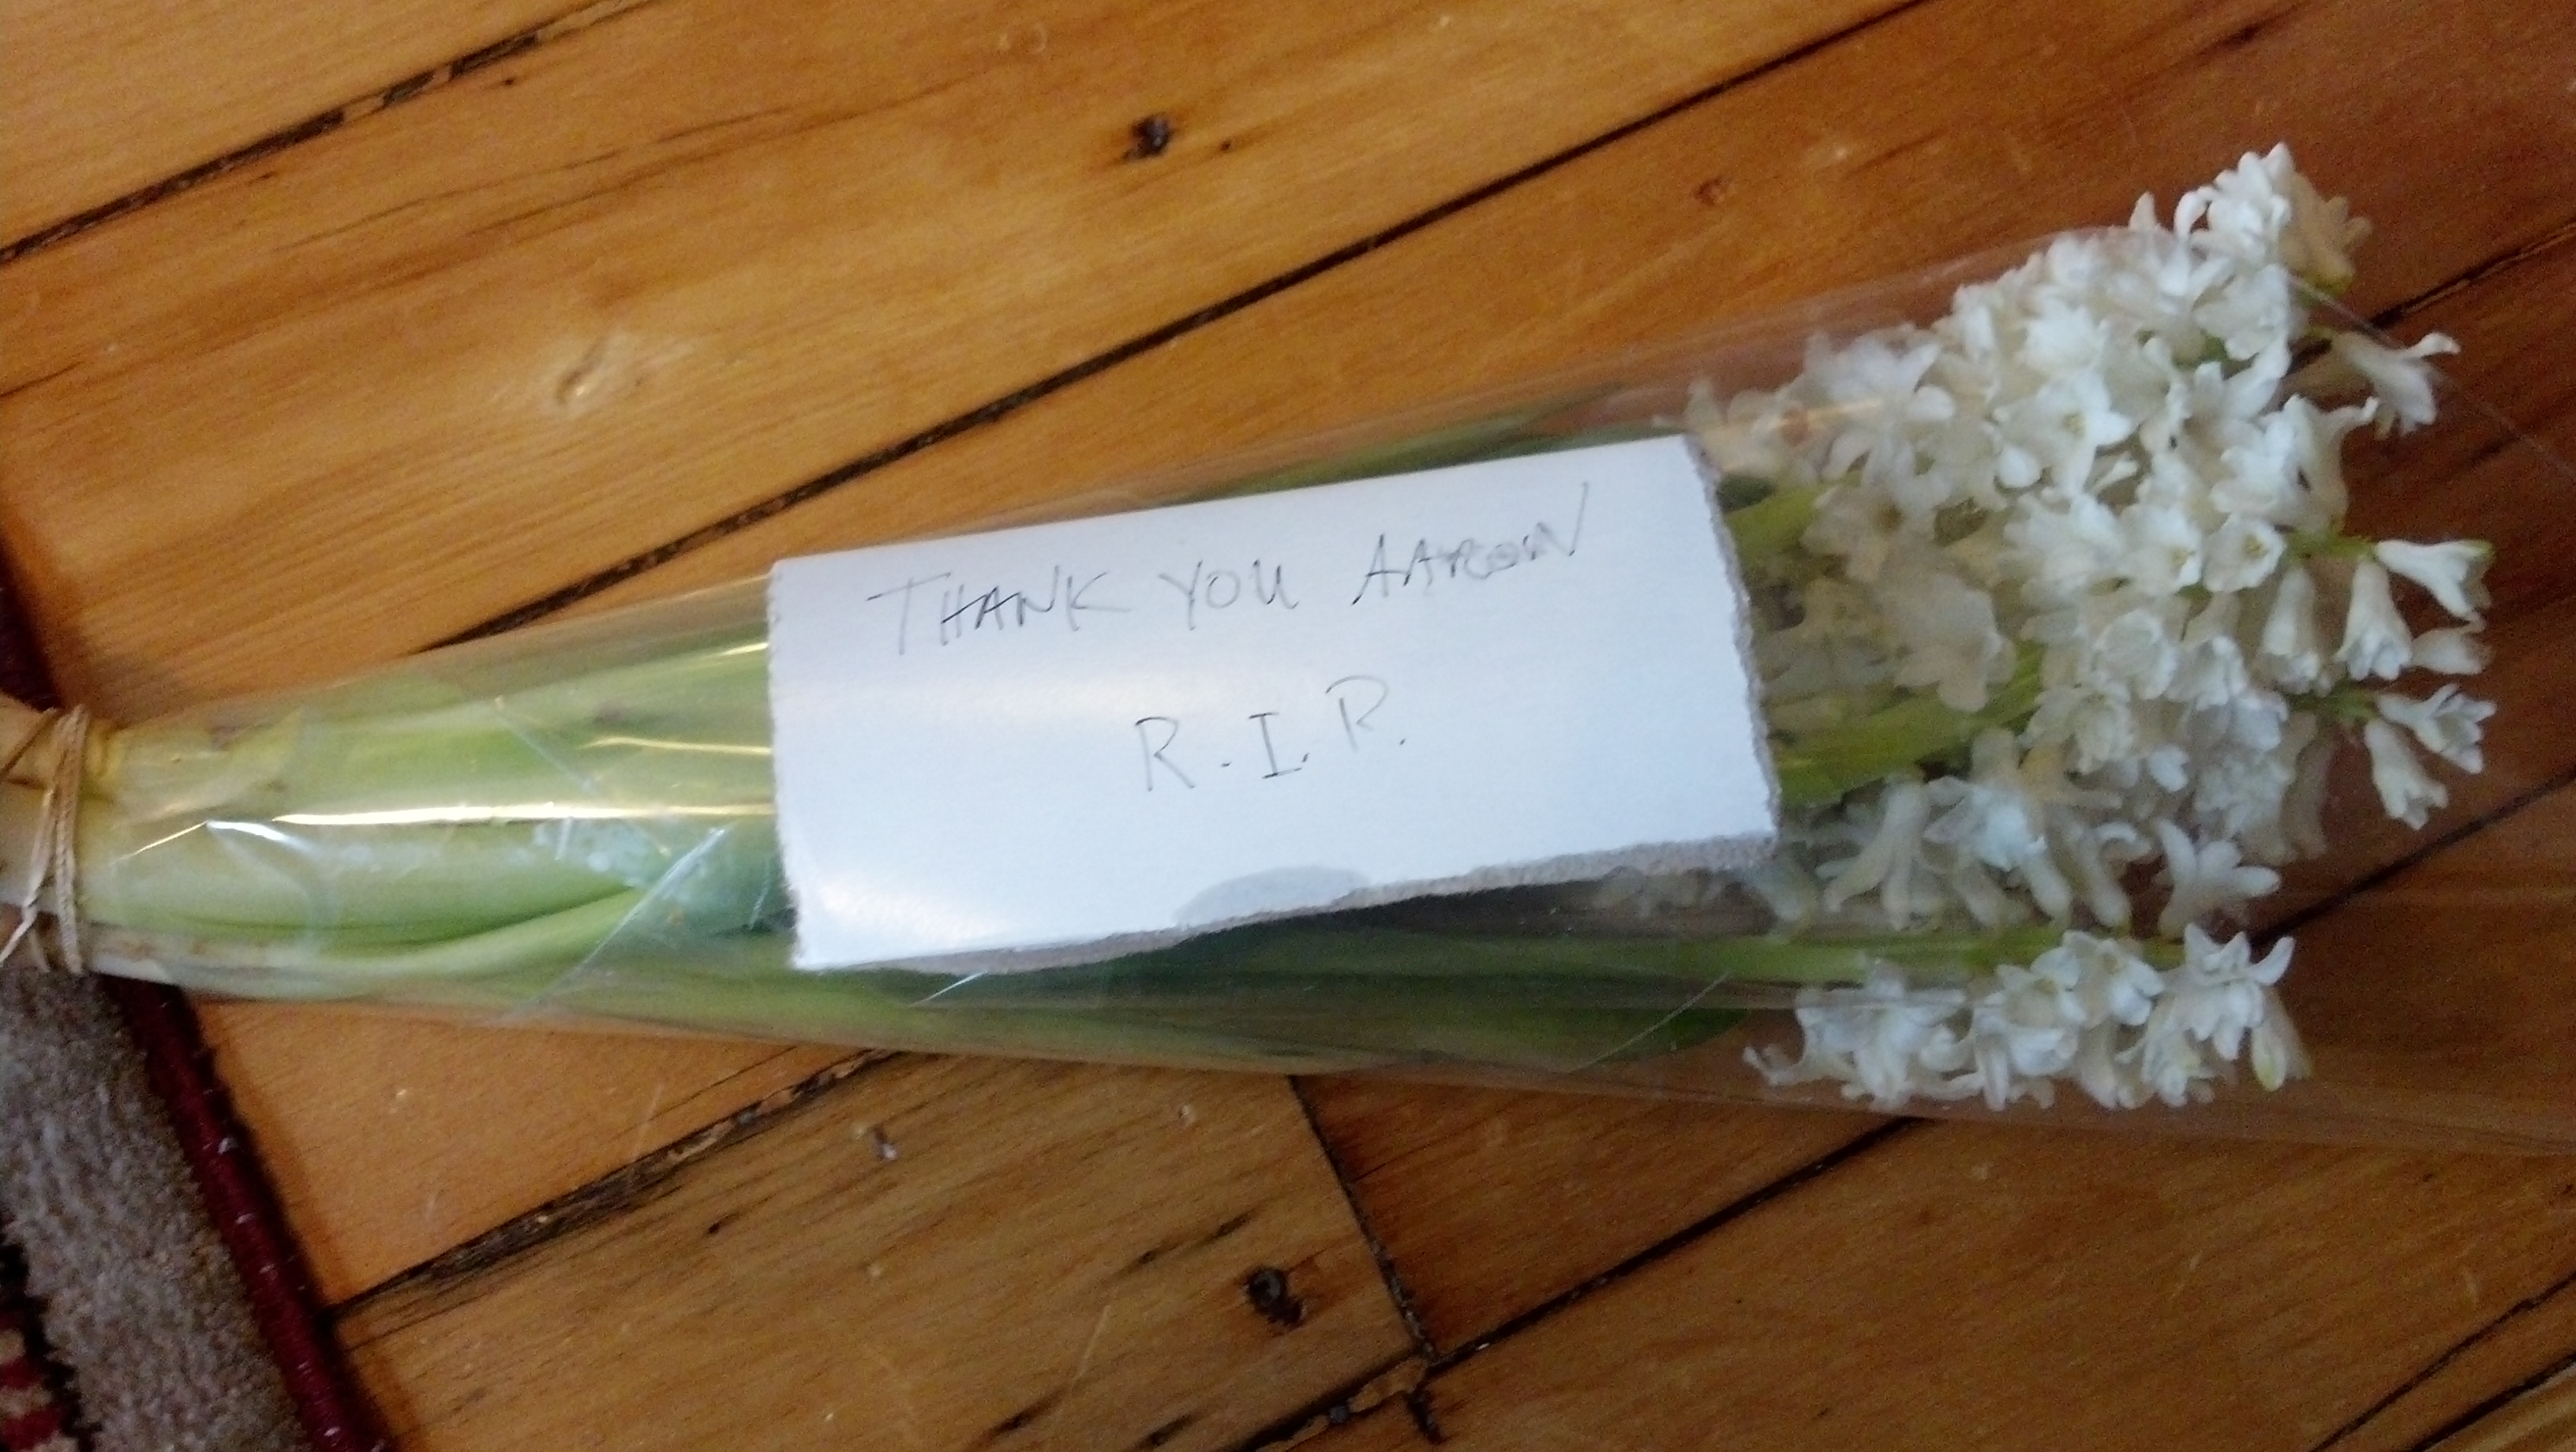 THANK YOU AARON
R.I.P.